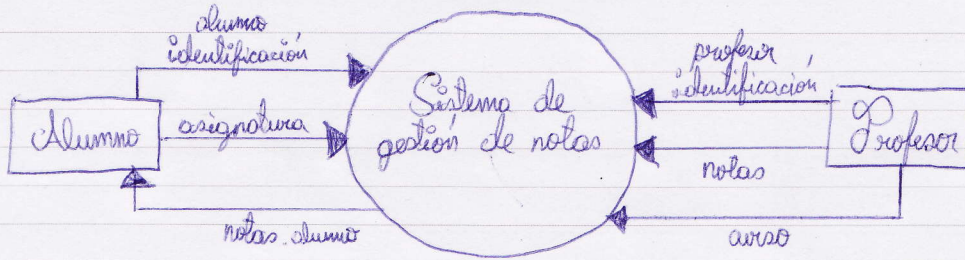 alumno
identificación
Alumno
asignatura
notas alumno
Sistema de
gestión de notas
profesor
identificación
Profesor
notas
aviso